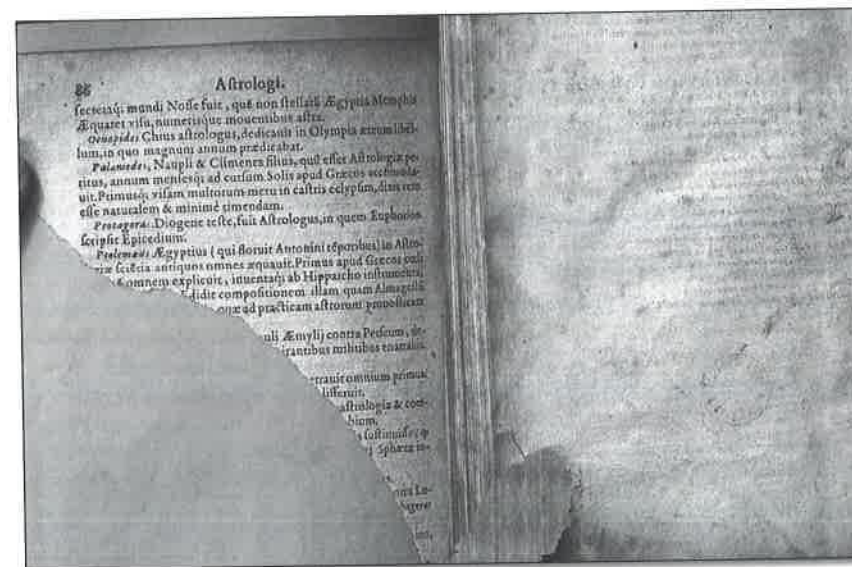 88
Aſtrologi.
ſecretaq́; mundi Noſſe fuit, quē non ſtellarū Ægyptia Memphis
Æquaret viſu, numeriſque mouentibus aſtra.
Oenopides Chius aſtrologus, dedicauit in Olympia æreum libel-
lum, in quo magnum annum prædicabat.
Palamedes, Naupli & Climenes filius, quū eſſet Aſtrologiæ pe-
ritus, annum menſesq́; ad curſum Solis apud Græcos accõmoda-
uit. Primusq́; viſam multorum metu in caſtris eclypſim, dixit rem
eſſe naturalem & minimè timendam.
Protagoras, Diogene teſte, fuit Aſtrologus, in quem Euphorion
ſcripſit Epicedium.
Ptolemæus Ægyptius (qui floruit Antonini tēporibus) in Aſtro-
ſciētia antiquos omnes æquauit. Primus apud Græcos cæli
omnem explicuit, inuentaq́; ab Hipparcho inſtrumenta,
didit compoſitionem illam quam Almageſtū
quæ ad practicam aſtrorum
uli Æmylij contra Perſeum, de-
irantibus militibus
trauit omnium primus
diſſeruit.
aſtrologia & com-
bium.
ſuſtinuiſſe; &
Sphæra in-